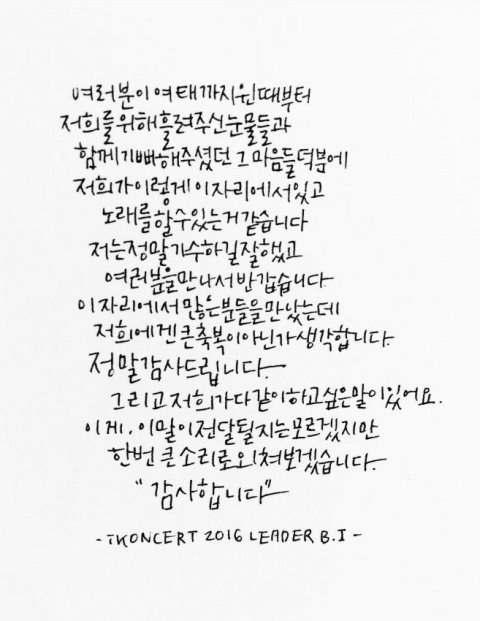 여러분이 여태까지 윈때부터
저희를 위해 흘려주신 눈물들과
함께 기뻐해주셨던 그 마음들 덕분에
저희가 이렇게 이 자리에 서있고
노래를 할 수 있는거 같습니다
저는 정말 가수하길 잘했고
여러분을 만나서 반갑습니다.
이 자리에서 많은 분들을 만났는데
저희에겐 큰 축복이 아닌가 생각합니다.
정말 감사드립니다.
그리고 저희가 다같이 하고싶은 말이 있어요.
이게, 이 말이 전달될지는 모르겠지만
한번 큰 소리로 외쳐보겠습니다.
"감사합니다"
- iKONCERT 2016 LEADER B.I -